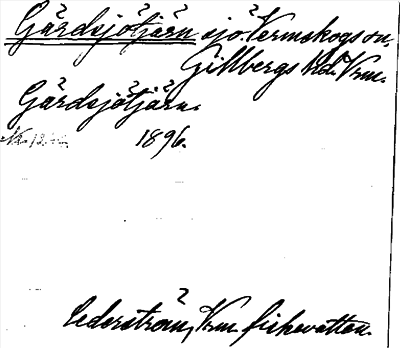 Gårdsjötjärn sjö. Värmskogs sn,
Gillbergs hd. Vrm.
Gårdsjötjärn.
1896.
Cederström, Vrm fiskevatten.